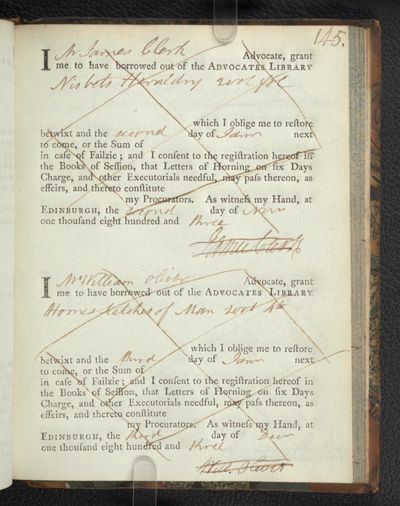 145.
I Mr James Clerk Advocate, grant
me to have borrowed out of the ADVOCATES LIBRARY
Nisbets Heraldry 2 vol fol
which I oblige me to reſtore
betwixt and the second day of Janr next
to come, or the Sum of
in caſe of Failzie ; and I conſent to the regiſtration hereof in
the Books of Seſſion, that Letters of Horning on ſix Days
Charge, and other Executorials needful, may paſs thereon, as
effeirs, and thereto conſtitute
my Procurators. As witneſs my Hand, at
EDINBURGH, the second day of
one thouſand eight hundred and three
James Clerk
I Mr William Oliver Advocate, grant
me to have borrowed out of the ADVOCATES LIBRARY
Homes sketches of Man 2 vol
which I oblige me to reſtore
betwixt and the third day of Janr next
to come, or the Sum of
in caſe of Failzie ; and I conſent to the regiſtration hereof in
the Books of Seſſion, that Letters of Horning on ſix Days
Charge, and other Executorials needful, may paſs thereon, as
effeirs, and thereto conſtitute
my Procurators. As witneſs my Hand, at
EDINBURGH, the third day of
one thouſand eight hundred and three
Wm. Oliver